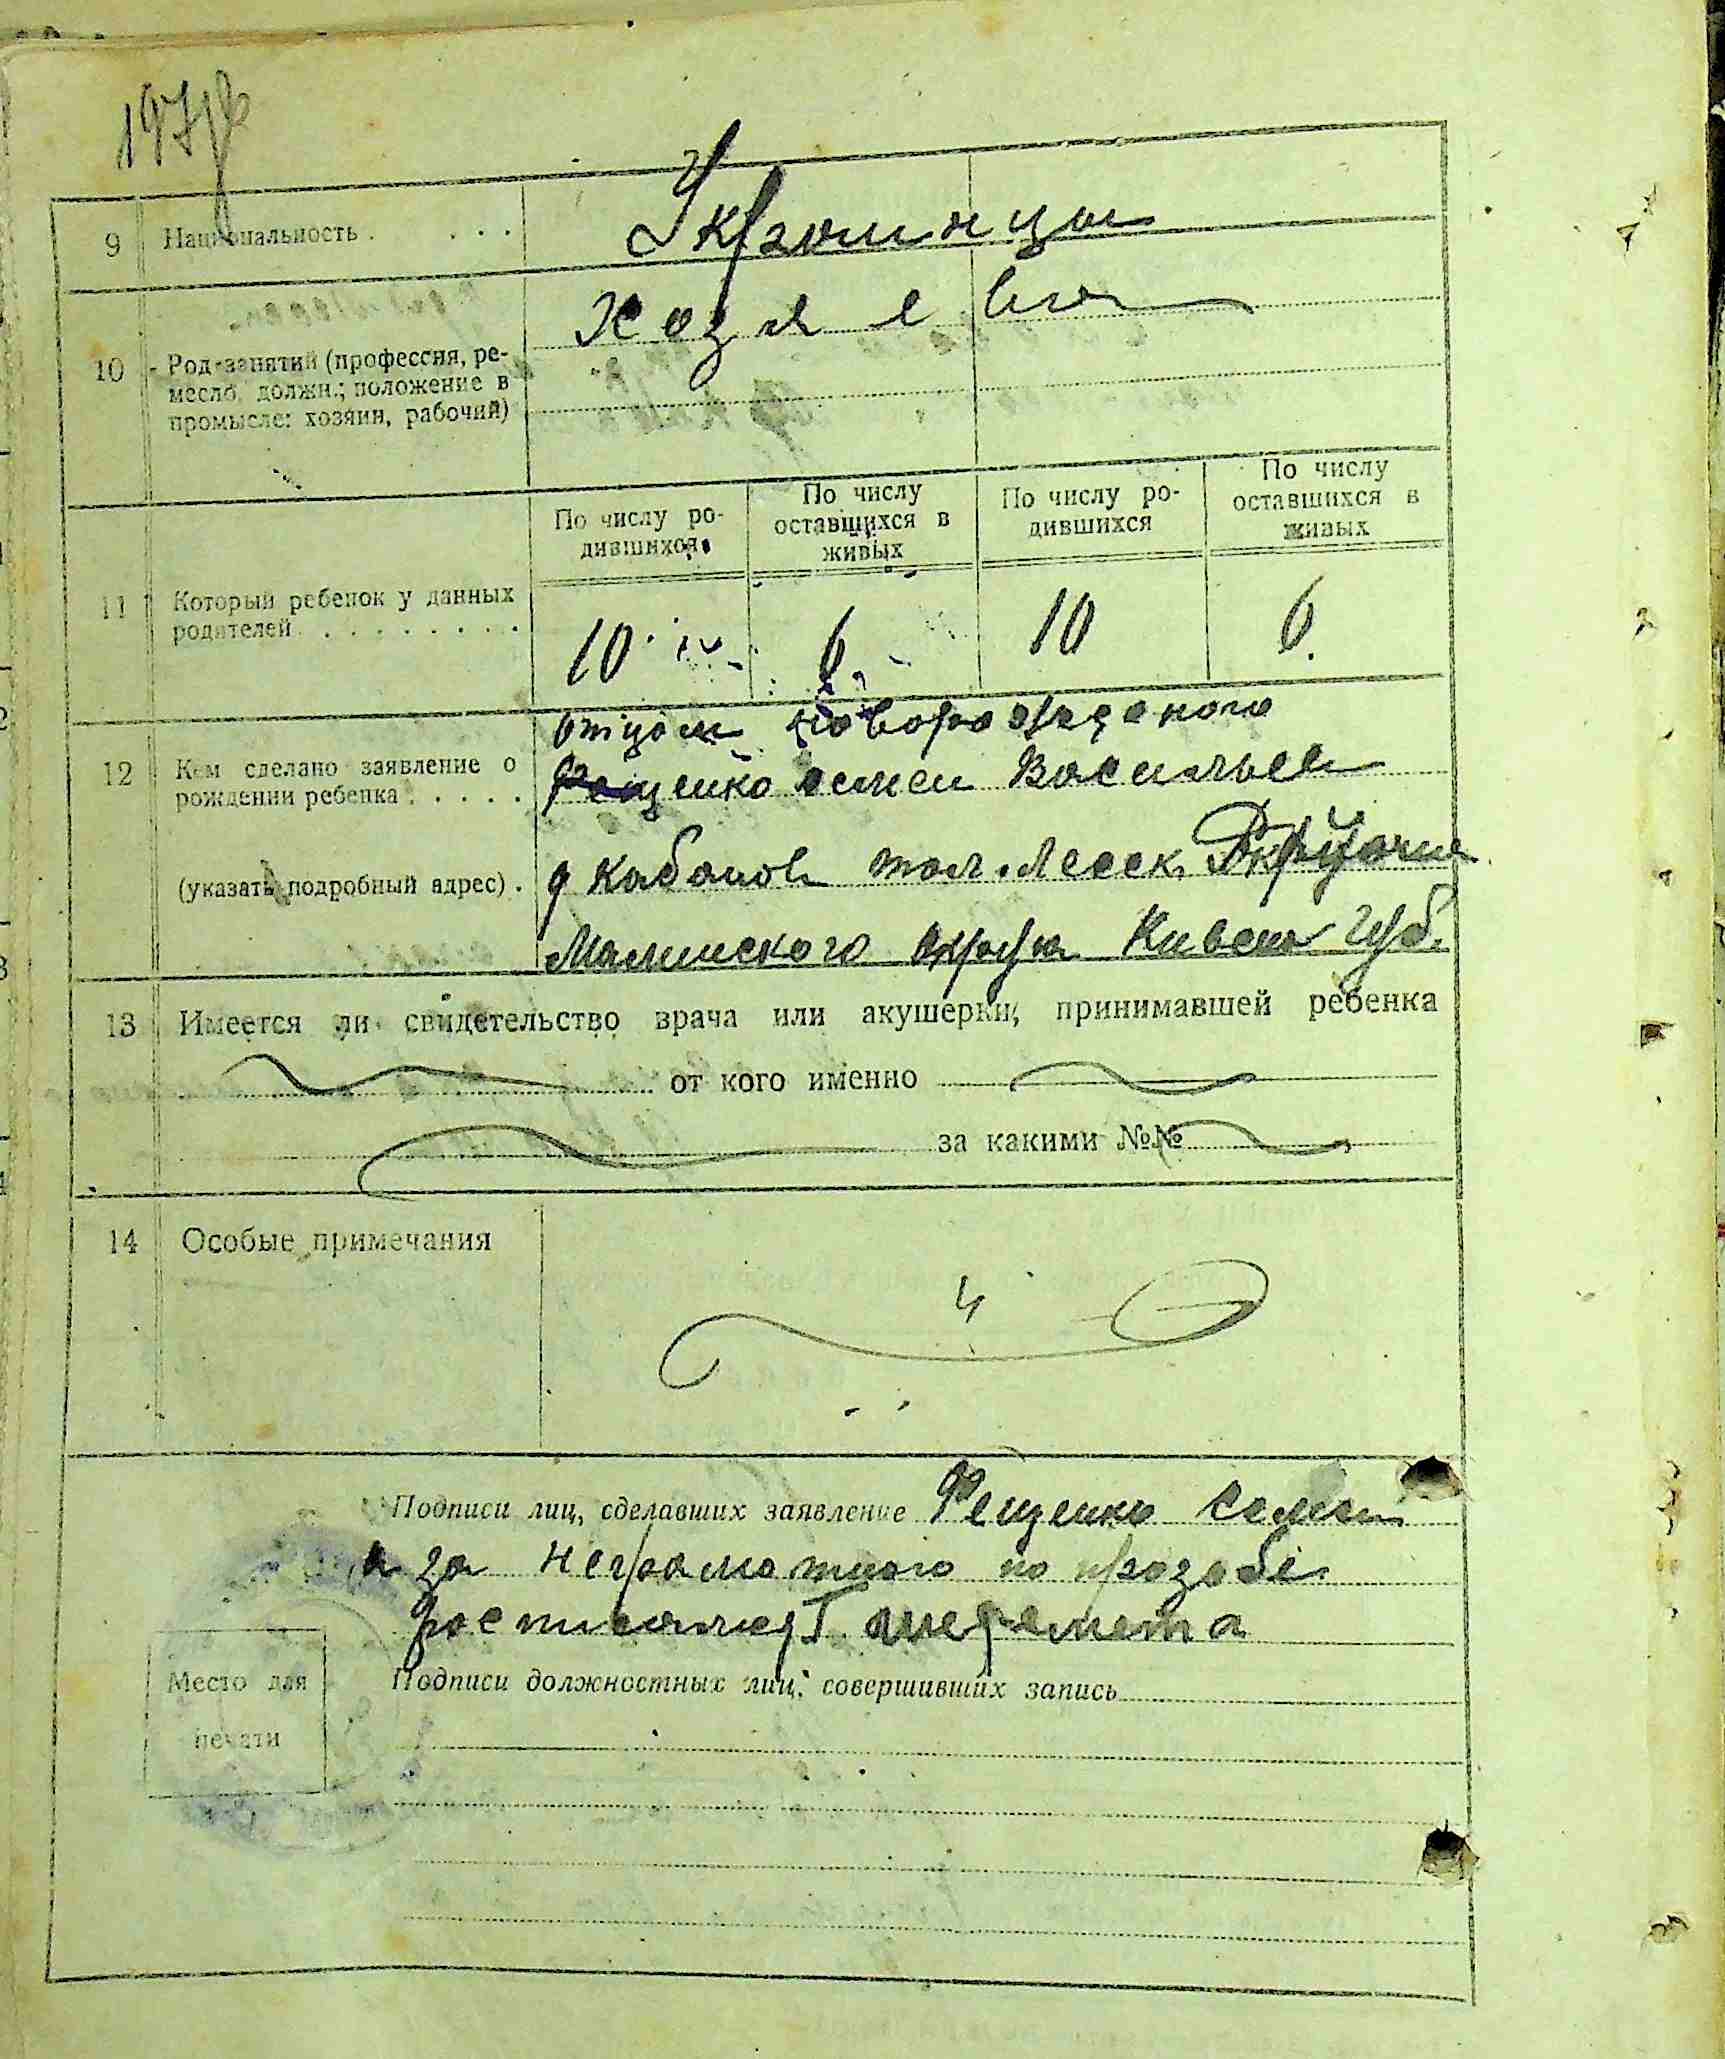 197
9 Национальность . . . . Украинцы
Хозяева
10 Род занятий (профессия, ре-
месло, должн.; положение в
промысле: хозяин, рабочий)
По числу ро-
дившихся
По числу
оставшихся в
живых
По числу ро-
дившихся
По числу
оставшихся в
живых
11 Который ребенок у данных
родителей . . . . . . . .
10 6 10 6
отцом новорожденого
12 Кем сделано заявление о
рождении ребенка . . . . .
Фещенко Семен Васильев
(указать подробный адрес) .
д Кабанов
Малинского округа Киевск губ.
13 Имеется ли свидетельство врача или акушерки, принимавшей ребенка
от кого именно
за какими №№
14 Особые примечания
Подписи лиц, сделавших заявление Фещенко Семен
а за неграмотного по прозбе
Место для
печати
Подписи должностных лиц, совершивших запись